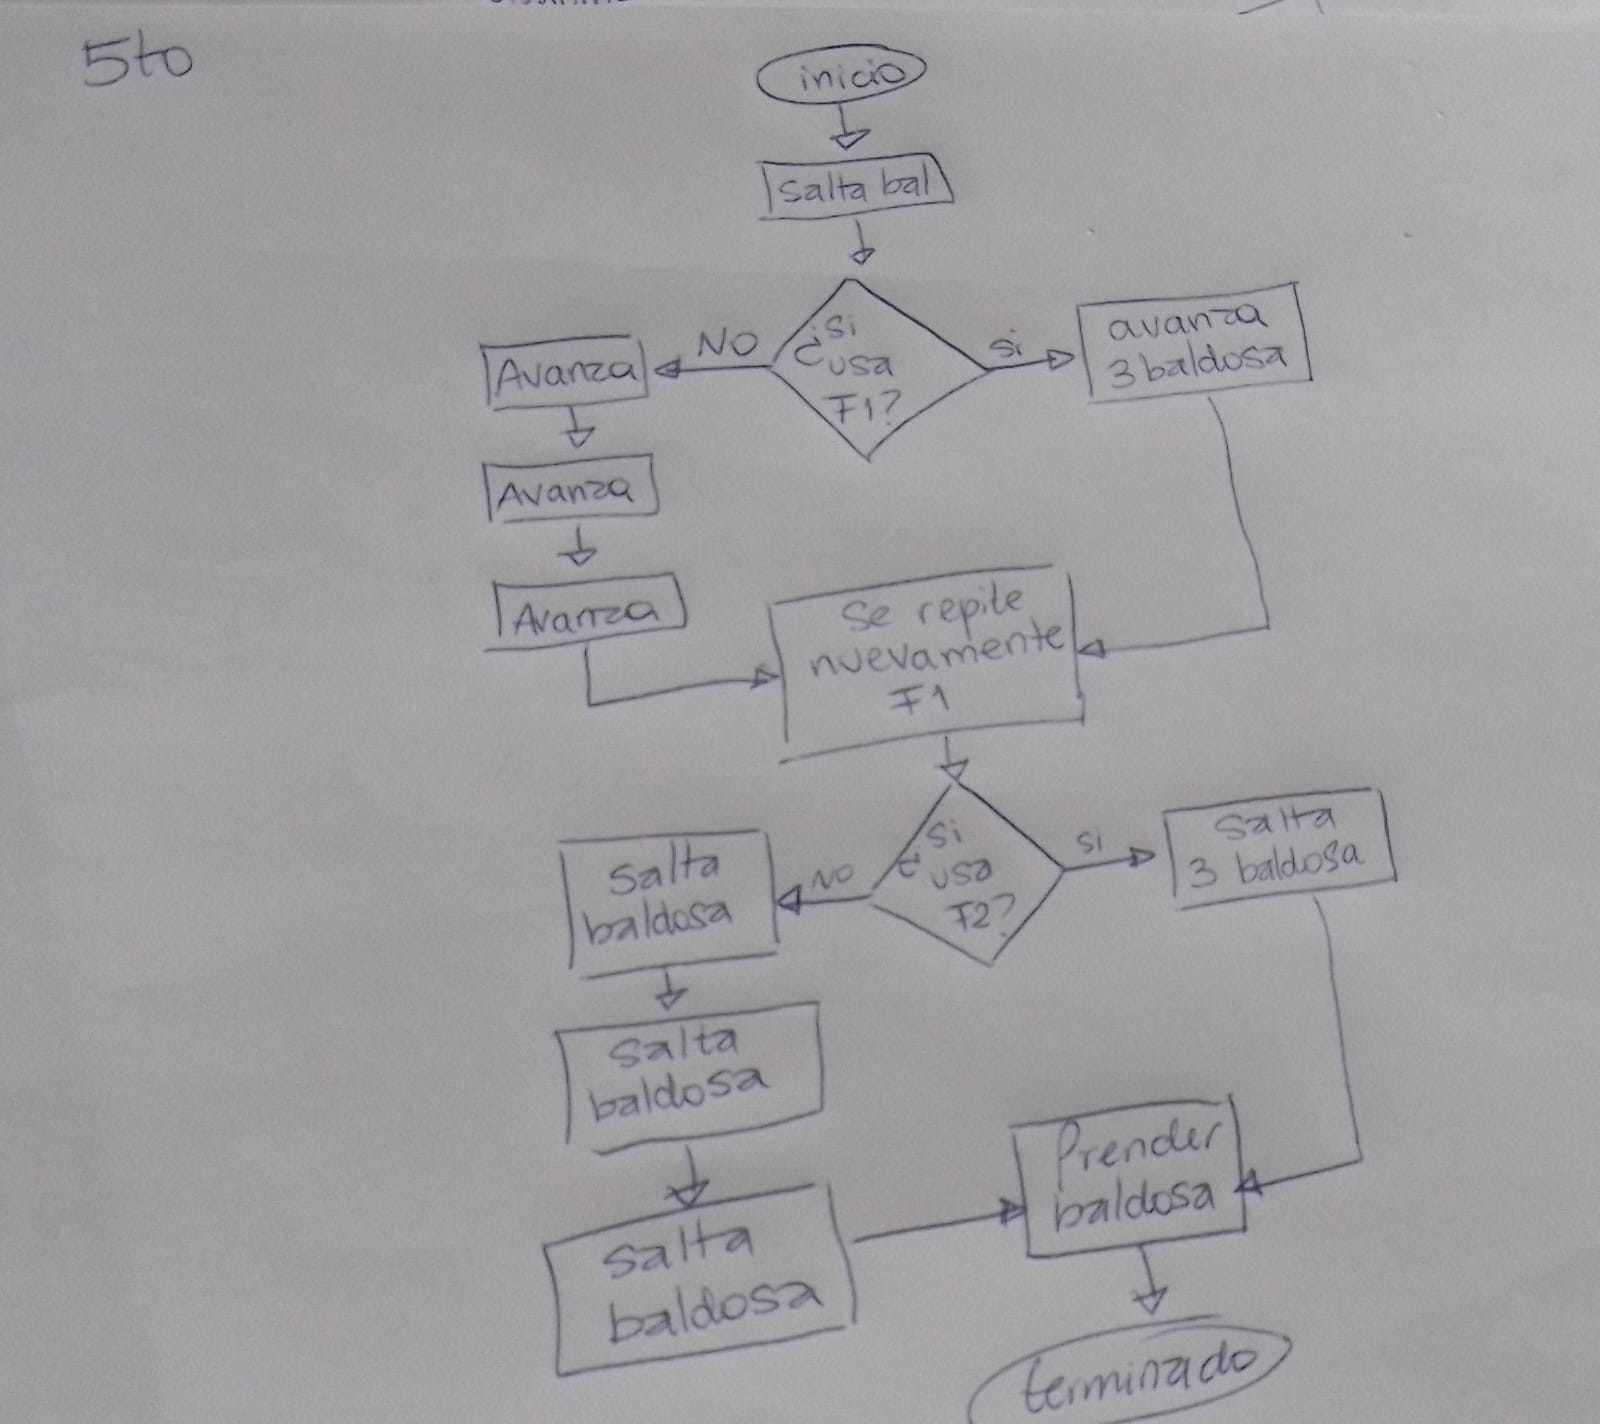 5to
inicio
salta bal
¿si
usa
F1?
NO
si
Avanza
avanza
3 baldosa
Avanza
Avanza
Se repite
nuevamente
F1
¿si
usa
F2?
NO
si
Salta
baldosa
Salta
3 baldosa
Salta
baldosa
Salta
baldosa
Prender
baldosa
terminado